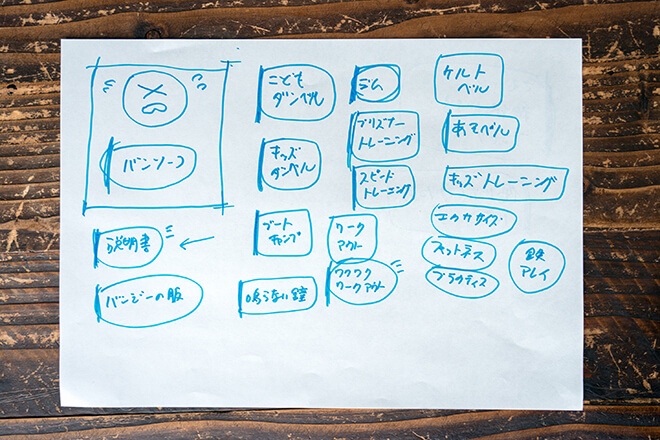 バンソーコ
説明書
バンジーの服
こども
ダンベル
キッズ
ダンベル
ブート
キャンプ
鳴らない鐘
ジム
プリズナー
トレーニング
スピード
トレーニング
ワーク
アウト
ワクワク
ワークアウト
ケルト
ベル
キッズトレーニング
エクササイズ
フィットネス
プラクティス
鉄
アレイ